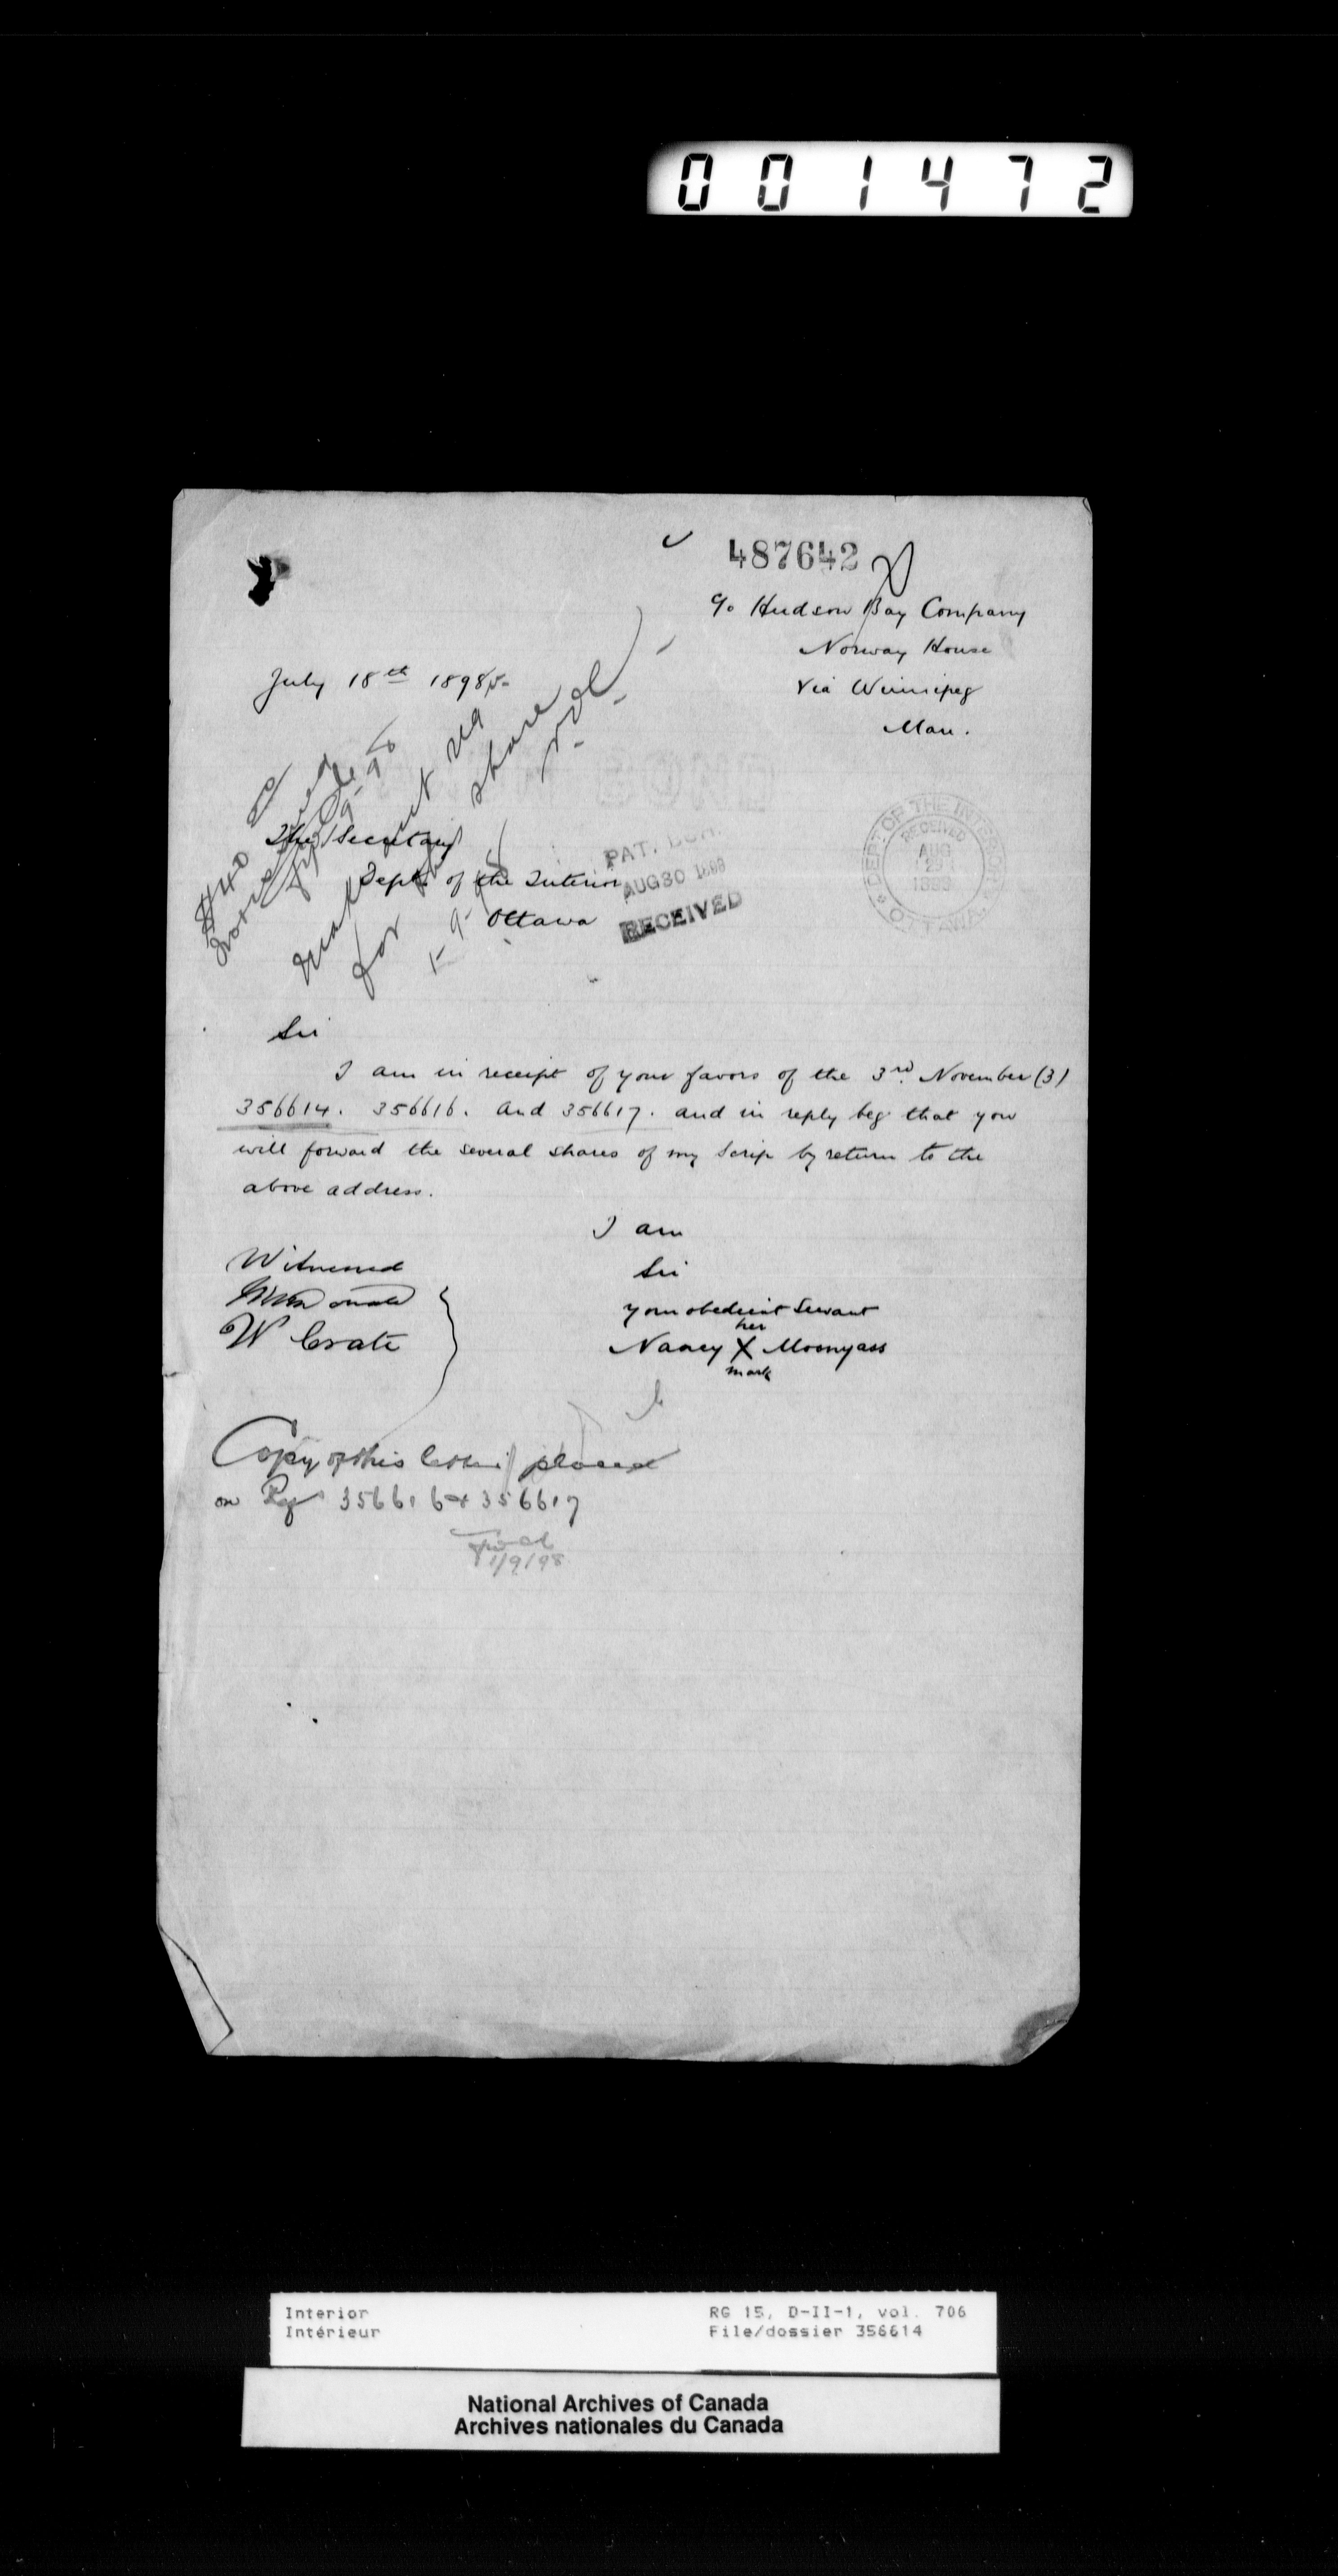 001472
487642
c/o Hudson Bay Company
Norway House
Via Winnipeg
Man.
July 18th 1898
$40
The Secretary
Dept. of the Interior
Ottawa
for share
PAT.
AUG 30 1898
RECEIVED
DEPT OF THE INTERIOR
RECEIVED
AUG
29
1898
OTTAWA
Sir
I am in receipt of your favors of the 3rd November (3)
356614. 356616. and 356617. and in reply beg that you
will forward the several shares of my Scrip by return to the
above address.
I am
Sir
your obedient Servant
her
Nancy X Moonyass
mark
Witnessed
W Crate
Copy of this letter placed
on Ref 356616 & 356617
1/9/98
Interior
Intérieur
RG 15, D-II-1, vol. 706
File/dossier 356614
National Archives of Canada
Archives nationales du Canada